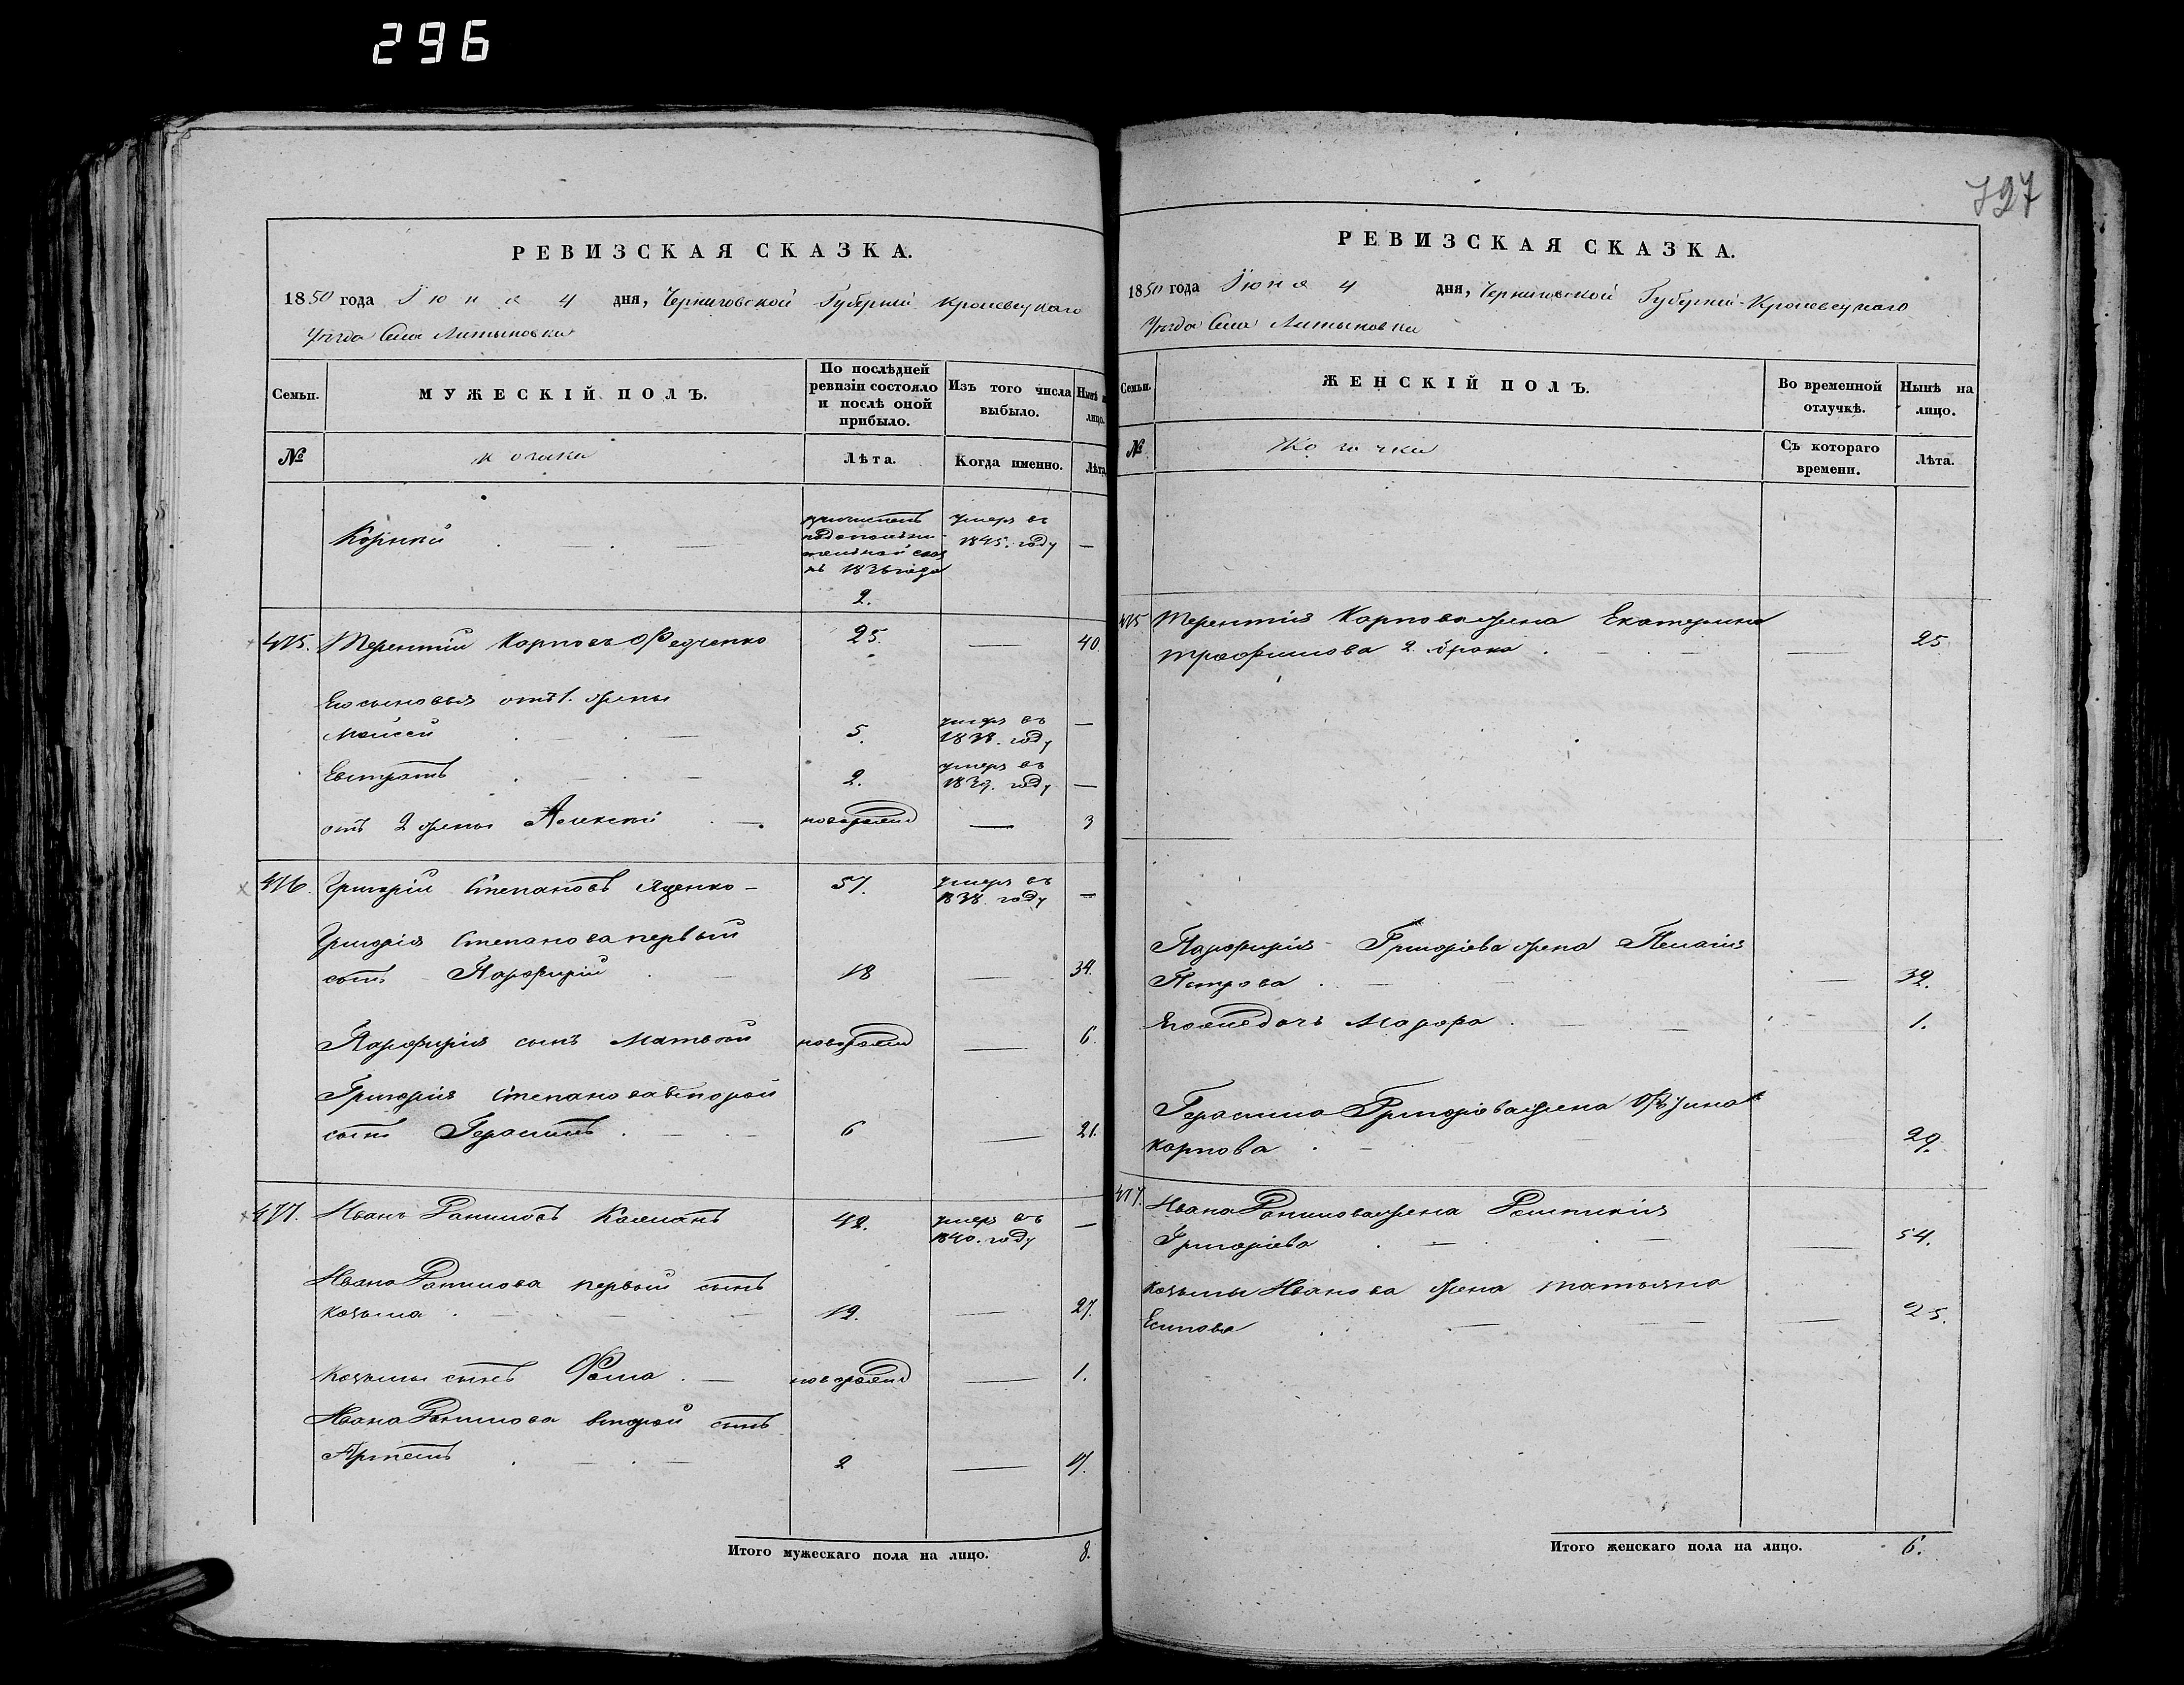 296
РЕВИЗСКАЯ СКАЗКА.
1850 года Іюня 4 дня, Черниговской Губерніи Кролевецкаго
Уѣзда Села Литыновки
Семьи. МУЖЕСКІЙ ПОЛЪ. По послѣдней ревизіи состояло и послѣ оной прибыло. Изъ того числа выбыло. Нынѣ на лицо.
№ козаки Лѣта. Когда именно. Лѣта
Корній умеръ въ 1845. году —
2.
475. Терентій Карповъ Федченко 25. — 40
Его сыновья отъ 1. жены
Моисей 5. умеръ въ 1838. году —
Евстратъ 2. умеръ въ 1839. году —
отъ 2 жены Алексѣй новорожден — 3
476. Григорій Степановъ Яценко 51. умеръ въ 1838. году —
Григорія Степанова первый
сынъ Парфирій 18 — 34.
Парфирія сынъ Матвѣй новорожден — 6.
Григорія Степанова второй
сынъ Герасимъ 6 — 21.
477. Иванъ Даниловъ 42. умеръ въ 1840. году —
Ивана Данилова первый сынъ
Козьма 12. — 27.
Козьмы сынъ Фома новорожден — 1.
Ивана Данилова второй сынъ
Артемъ 2 — 17.
Итого мужескаго пола на лицо. 8.
727
РЕВИЗСКАЯ СКАЗКА.
1850 года Іюня 4 дня, Черниговской Губерніи Кролевецкаго
Уѣзда Села Литыновки
Семьи. ЖЕНСКІЙ ПОЛЪ. Во временной отлучкѣ. Нынѣ на лицо.
№ Козачки Съ котораго времени. Лѣта.
475 Терентія Карпова жена Екатерина
Трофимова 2. брака — 25
Парфирія Григорьева жена Пелагія
Петрова — 32.
Его дочь Марфа 1.
Герасима Григорьева жена
Карпова 29.
477. Ивана Данилова жена
Григорьева — 54.
Козьмы Иванова жена Татьяна
Есипова — 25.
Итого женскаго пола на лицо. 6.